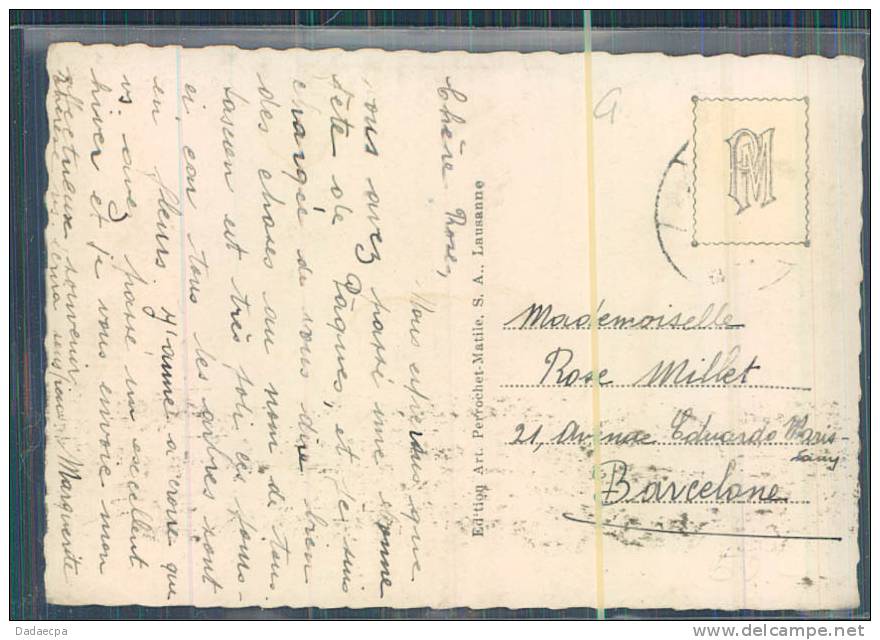 Chère Rose,
Nous espérons que
vous avez passé une bonne
fête de Pâques, et je suis
chargée de vous dire bien
des choses au nom de tous.
est très joli ces jours-
ci car tous les arbres sont
en fleurs. J'aime à croire que
vs. avez passé un excellent
hiver et je vous envoie mon
affectueux souvenir. Marguerite
Edition Art. Perrochet-Matile, S. A., Lausanne
PM
Mademoiselle
Rose Millet
21, Avenue Eduardo Maris-
tany
Barcelone
Dadaecpa
www.delcampe.net